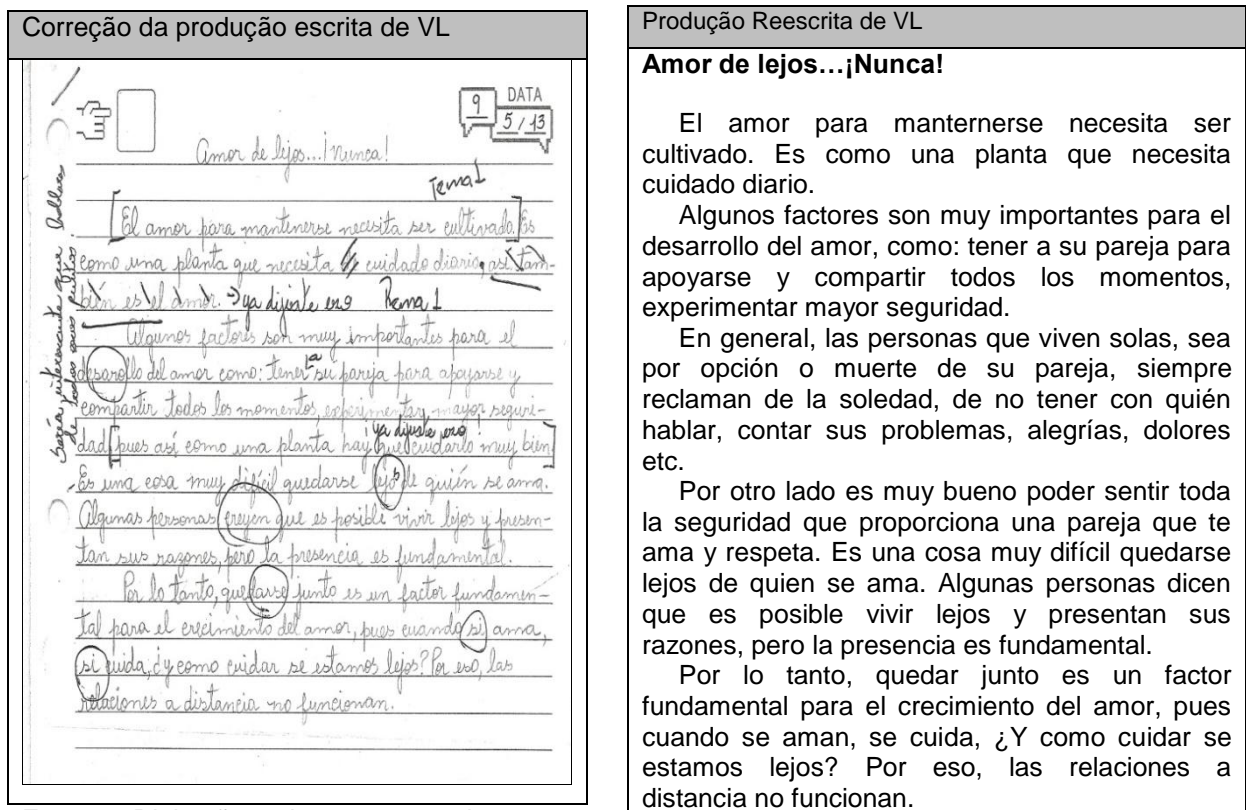 Correção da produção escrita de VL
9 DATA
5/13
Amor de lejos...¡Nunca!
Tema 1
[El amor para mantinerse necesita ser cultivado.] Es
como una planta que necesita cuidado diario, así tam-
bién es el amor. ya dijiste eso Rema 1
Algunos factores son muy importantes para el
desarollo del amor como: tener a su pareja para apoyarse y
compartir todos los momentos, experimentar mayor seguri-
dad [pues así como una planta hay que cuidarlo muy bien]
ya dijiste eso!
Es una cosa muy difícil quedarse lejos de quién se ama.
Algunas personas creyen que es posible vivir lejos y presen-
tan sus razones, pero la presencia es fundamental.
Por lo tanto, quedarse junto es un factor fundamen-
tal para el crecimiento del amor, pues cuando si ama,
si cuida, ¿y como cuidar se estamos lejos? Por eso, las
relaciones a distancia no funcionan.
Sería interesante que
de todos esos
Produção Reescrita de VL
Amor de lejos…¡Nunca!
El amor para manternerse necesita ser
cultivado. Es como una planta que necesita
cuidado diario.
Algunos factores son muy importantes para el
desarrollo del amor, como: tener a su pareja para
apoyarse y compartir todos los momentos,
experimentar mayor seguridad.
En general, las personas que viven solas, sea
por opción o muerte de su pareja, siempre
reclaman de la soledad, de no tener con quién
hablar, contar sus problemas, alegrías, dolores
etc.
Por otro lado es muy bueno poder sentir toda
la seguridad que proporciona una pareja que te
ama y respeta. Es una cosa muy difícil quedarse
lejos de quien se ama. Algunas personas dicen
que es posible vivir lejos y presentan sus
razones, pero la presencia es fundamental.
Por lo tanto, quedar junto es un factor
fundamental para el crecimiento del amor, pues
cuando se aman, se cuida, ¿Y como cuidar se
estamos lejos? Por eso, las relaciones a
distancia no funcionan.